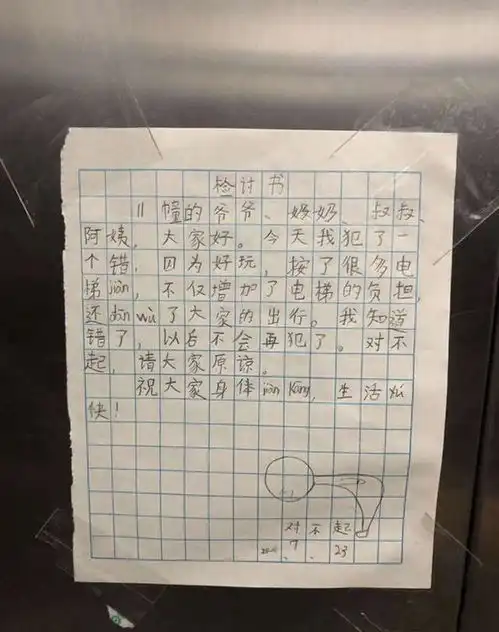 检讨书
11幢的爷爷、奶奶、叔叔、
阿姨，大家好。今天我犯了一
个错，因为好玩，按了很多电
梯jiàn，不仅增加了电梯的负担，
还dān wù了大家的出行。我知道
错了，以后不会再犯了。对不
起，请大家原谅。
祝大家身体jiàn kāng，生活愉
快！
对不起
7.23